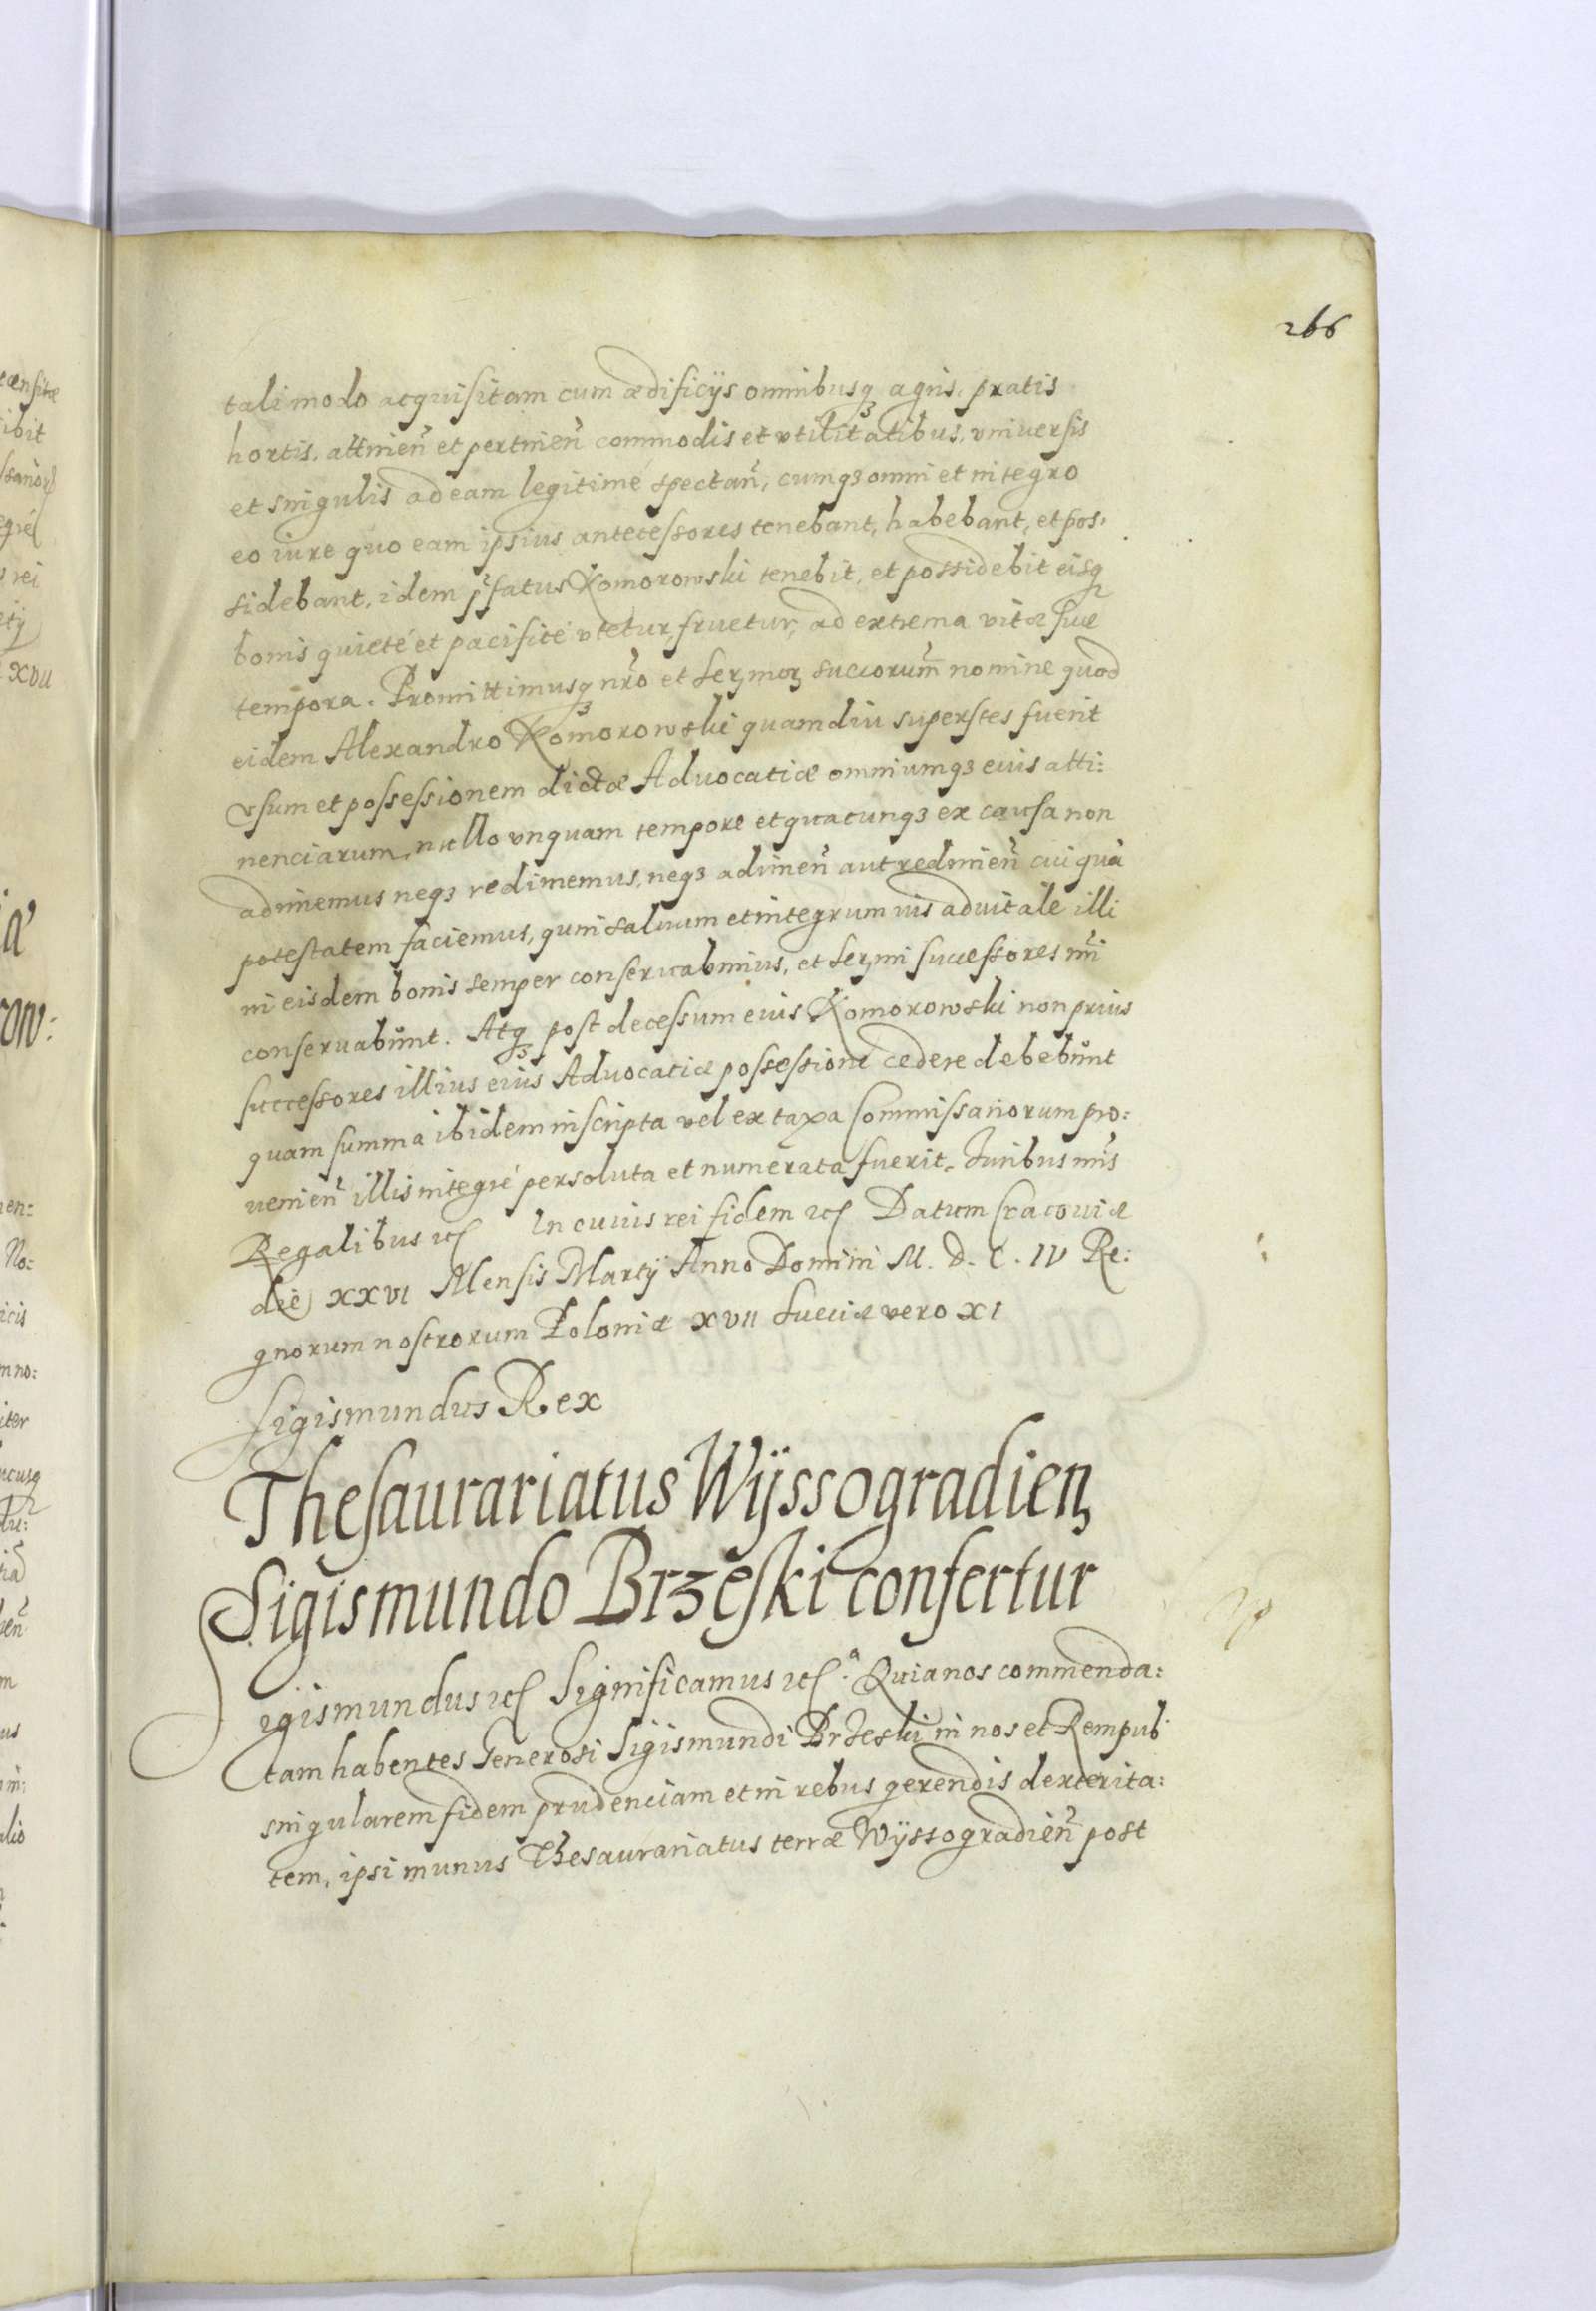 266
tali modo acquisitam cum ædificijs omnibusq₃ agris, pratis
hortis, attinen̄ et pertinen̄ commodis et vtilitatibus, vniversis
et singulis ad eam legitimé spectan̄, cumq₃ omni et integro
eo iure quo eam ipsius antecessores tenebant, habebant, et pos:
sidebant, idem p̄fatus Komorowski tenebit, et possidebit eisq₃
bonis quieté et pacificé vtetur, fruetur, ad extrema vitæ suæ
tempora. Promittimusq₃ nr̄o et Ser̄morꝫ succorum̄ nomine quod
eidem Alexandro Komorowski quamdiu superstes fuerit
vsum et possessionem dictæ Advocatiæ omniumq₃ eius atti:
nenciarum, nullo vnquam tempore et quacunq₃ ex causa non
adimemus neq₃ redimemus, neq₃ adimen̄ aut redimen̄ cuiquā
potestatem faciemus, quin salvum et integrum ius advitale illi
in eisdem bonis semper conservabimus, et Ser̄mi successores nr̄i
conservabunt. Atq₃ post decessum eius Komorowski non prius
successores illius eius Advocatiæ possessione cedere debebunt
quam summa ibidem inscripta vel ex taxa Commissariorum pro:
venien̄ illis integré persoluta et numerata fuerit. Iuribus nr̄is
Regalibus etc̄ In cuius rei fidem etc̄ Datum Cracoviæ
die XXVI Mensis Martij Anno Domini M. D. C. IV Re:
gnorum nostrorum Poloniæ XVII Sueciæ vero XI
Sigismundus Rex
Thesaurariatus Wÿssogradień
Sigismundo Brzeski confertur
Sigismundus etc̄ Significamus etc̄. Quia nos commenda:
tam habentes Generosi Sigismundi Brzeski in nos et Rempub.
singularem fidem prudenciam et in rebus gerendis dexterita:
tem, ipsi munus Thesaurariatus terræ Wÿssogradien̄ post